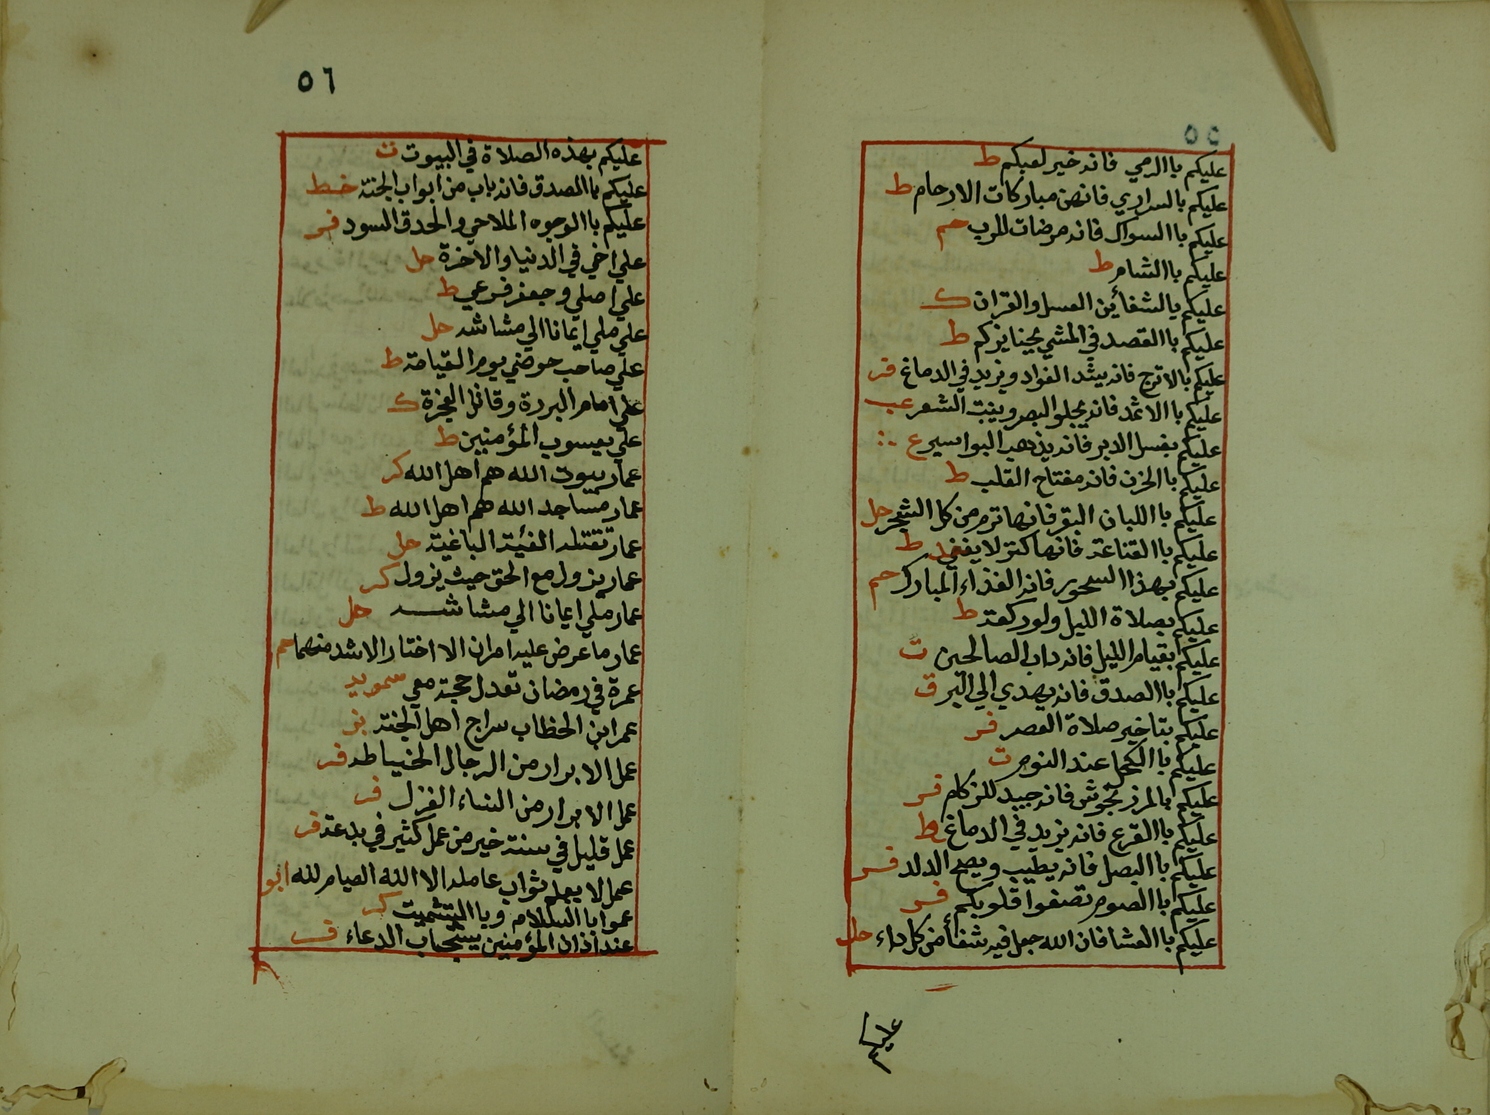 ٥٥
عليكم باالرمي فانه خير لعبكم ط
عليكم بالسراري فانهن مباركات الارحام ط
عليكم باالسواك فانه مرضات للرب حم
عليكم باالشام ط
عليكم بالشفأين العسل والقران ك
عليكم باالقصد في المشي بجنايزكم ط
عليكم بالاترج فانه يشد الفواد ويزيد في الدماغ فر
عليكم باالاثمد فانه يجلو البصر وينبت الشعر عب
عليكم بغسل الدبر فانه يذهب البواسير ع
عليكم باالحزن فانه مفتاح القلب ط
عليكم باالبان البقر فانها ترم من كل الشجر حل
عليكم باالقناعة فانها كنز لا يفغد ط
عليكم بهذا السحور فانه الغذاء المبارك حم
عليكم بصلاة الليل ولو ركعة ط
عليكم بقيام الليل فانه داب الصالحين ت
عليكم باالصدق فانه يهدي الي البر ق
عليكم بتاخير صلاة العصر فر
عليكم باالكحل عند النوم ت
عليكم بالمرزنجوش فانه جيد للزكام فر
عليكم باالقرع فانه يزيد في الدماغ ط
عليكم باالبصل فانه يطيب ويصح الدلد فر
عليكم باالصوم تصفوا قلوبكم فر
عليكم باالعشا فان الله جعل فيه شفأ من كل داء حل
عليكم
٥٦
عليكم بهذه الصلاة في البيوت ت
عليكم باالصدق فانه باب من ابواب الجنة خط
عليكم باالوجوه الملاحي والحدق السود فر
علي اخي في الدنيا والاخرة حل
علي اصلي وجعفر فرعي ط
علي ملي ايمانا الي مشاشه حل
علي صاحب حوضي يوم القيامة ط
علي امام البررة وقاتل الفجرة ك
علي يعسوب المؤمنين ط
عمار بيوت الله هم اهل الله كر
عمار مساجد الله هم اهل الله ط
عمار تقتله الفئة الباغية حل
عمار يزول مع الحق حيث يزول كر
عمار ملي ايمانا الي مشاشه حل
عمار ما عرض عليه امران الا اختار الاشد منهما حم
عمرة في رمضان تعدل حجة معي سمويه
عمر ابن الخطاب سراج اهل الجنة بز
عمل الابرار من الرجال الخياطه فر
عمل الابرار من النساء الغزل فر
عمل قليل في سنة خير من عمل كثير في بدعة فر
عمل لا يعلم ثواب عامله الا الله الصيام لله ابو
عموا باالسلام وباالتشميت كر
عند اذان المؤمنين يستجاب الدعاء ف